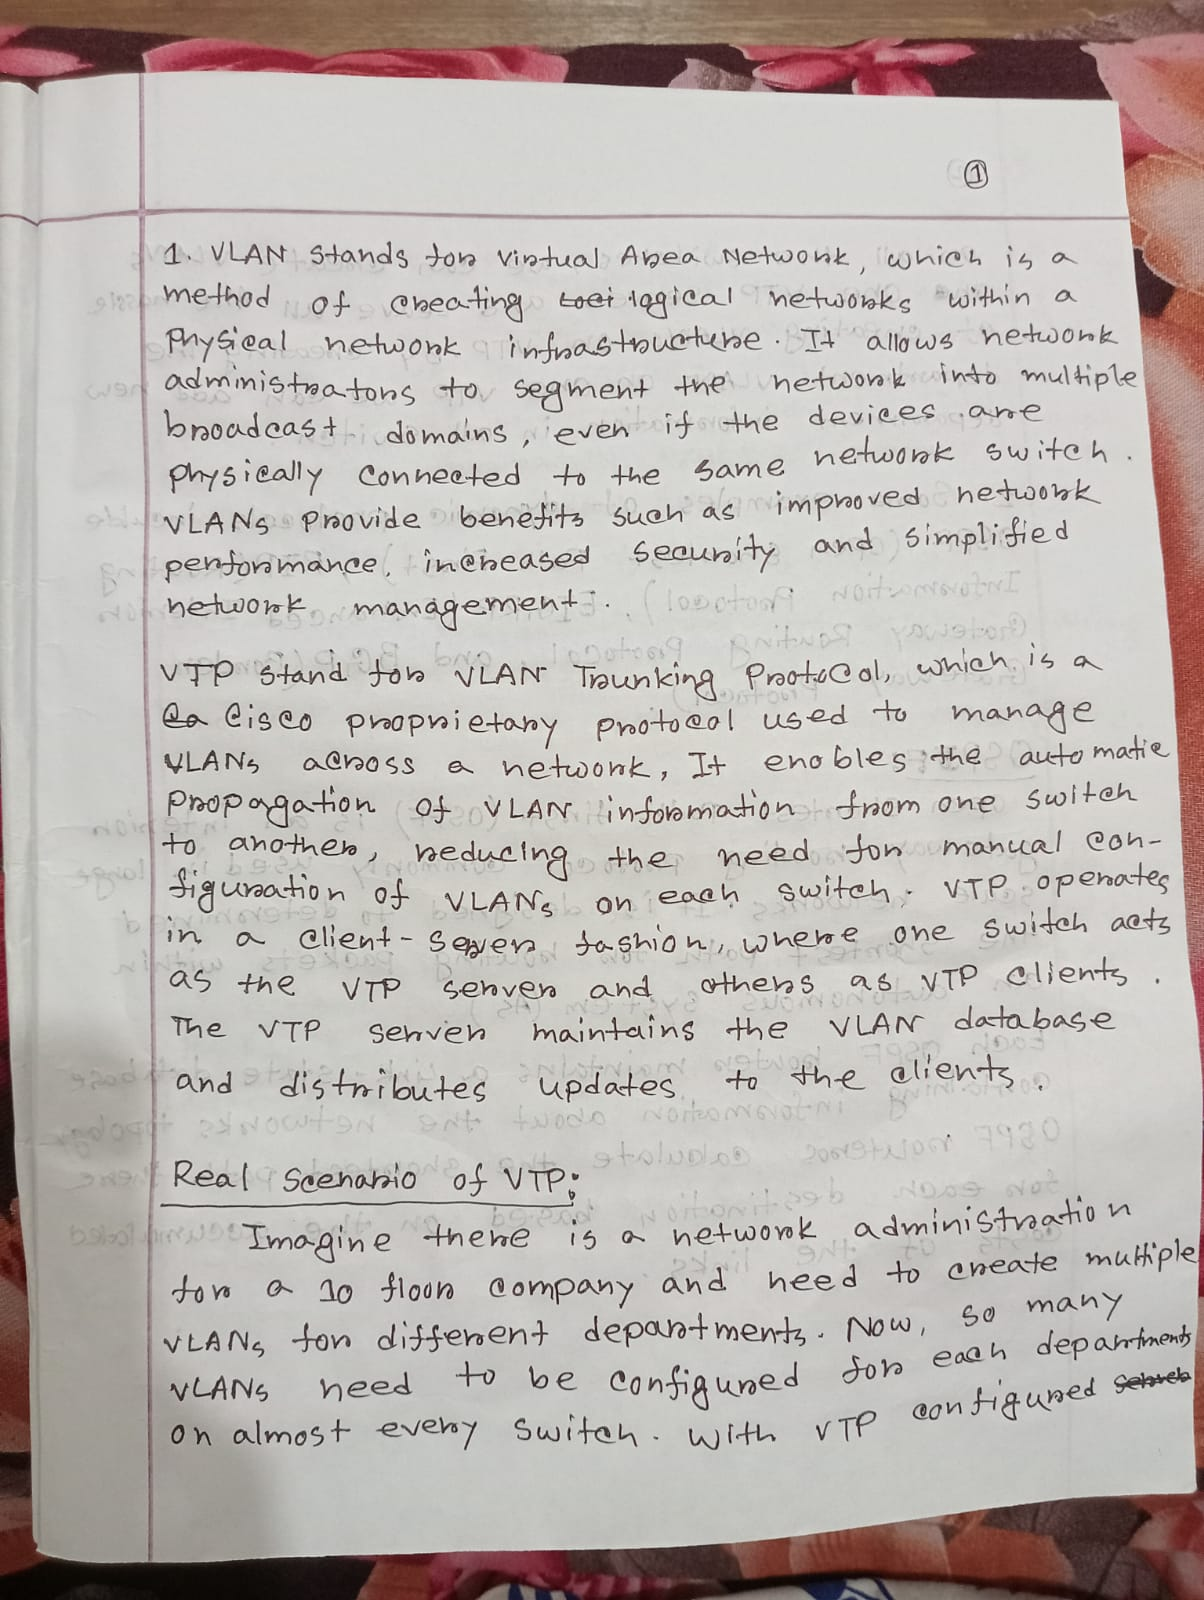 1
1. VLAN stands for Virtual Area Network, which is a
method of creating logical networks within a
physical network infrastructure. It allows network
administrators to segment the network into multiple
broadcast domains, even if the devices are
physically connected to the same network switch.
VLANs provide benefits such as improved network
performance, increased security and simplified
network management.
VTP stand for VLAN Trunking Protocol, which is a
Cisco proprietary protocol used to manage
VLANs across a network, It enobles the automatic
propagation of VLAN information from one switch
to another, reducing the need for manual con-
figuration of VLANs on each switch. VTP operates
in a client-server fashion, where one switch acts
as the VTP server and others as VTP clients.
The VTP server maintains the VLAN database
and distributes updates to the clients.
Real Scenario of VTP:
Imagine there is a network administration
for a 10 floor company and need to create multiple
VLANs for different departments. Now, so many
VLANs need to be configured for each departments
on almost every switch. With VTP configured